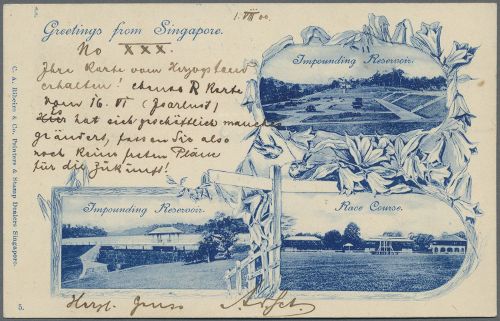 1. VIII 00.
Greetings from Singapore.
No XXX.
Ihre Karte vom Herzogstand
erhalten! ebenso R Karte
vom 16. VI (Saarlouis)
Hier hat sich geschäftlich manches
geändert, fassen Sie also
noch keine festen Pläne
für die Zukunft!
Impounding Reservoir.
Impounding Reservoir.
Race Course.
Herzl. Gruss
C. A. Ribeiro & Co. Publishers & Stamp Dealers Singapore.
5.